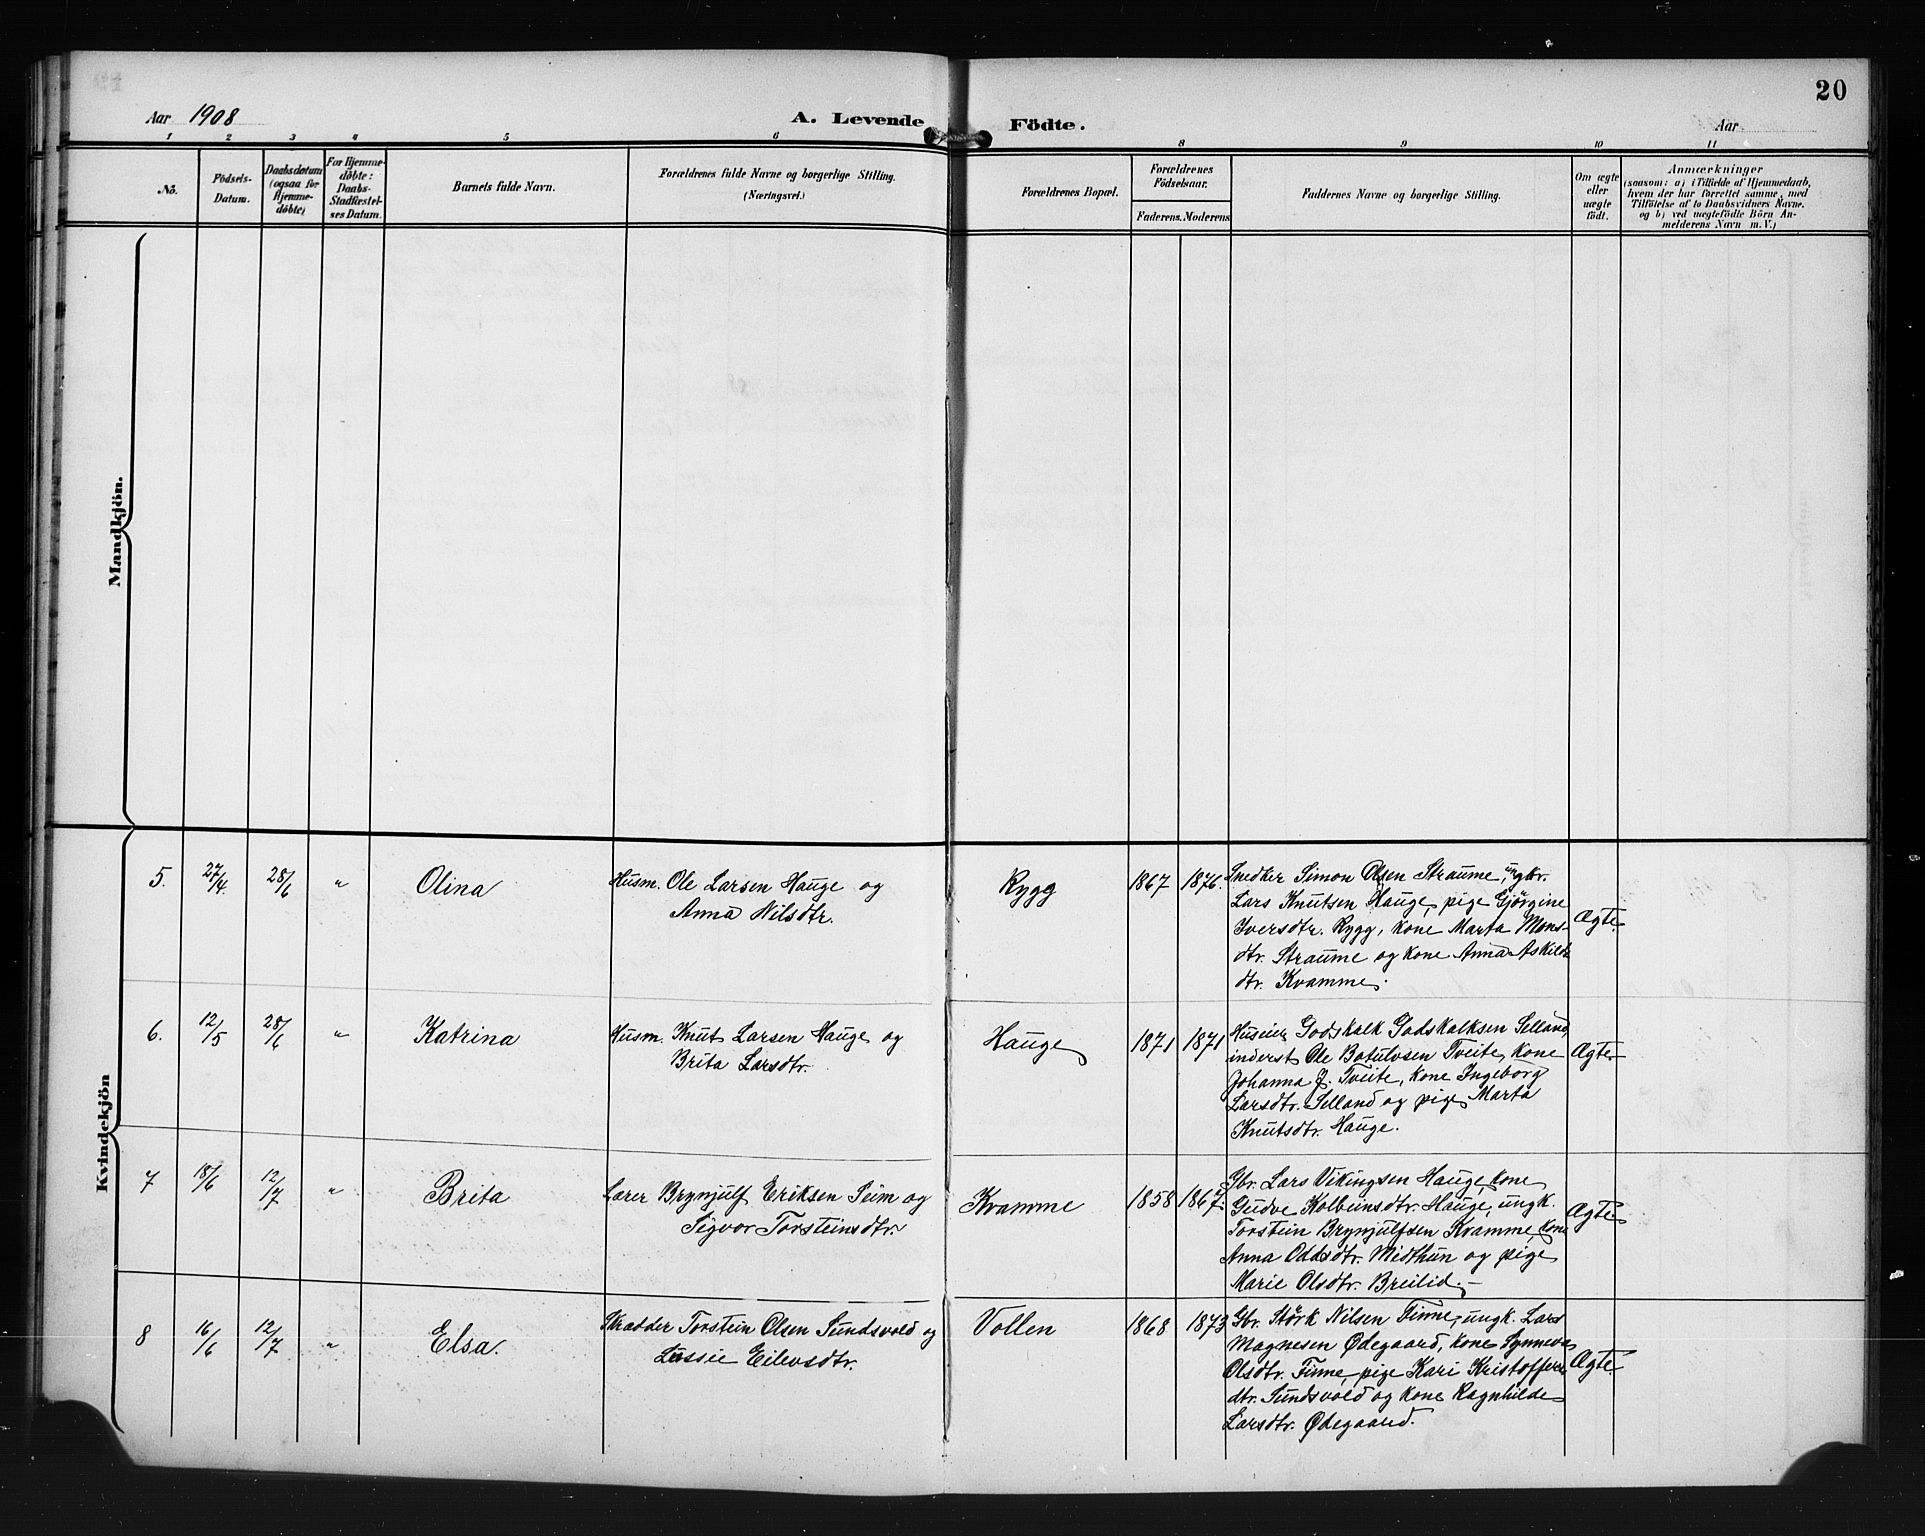 20
Aar 1908
A. Levende
Födte.
Aar
1 2 3 4 5 6 8 9 10 11
No.
Födsels-
Datum.
Daabsdatum
(ogsaa for
Hjemme-
döbte)
For Hjemme-
döbte:
Daabs-
Stadfæstel-
ses Datum.
Barnets fulde Navn.
Forældrenes fulde Navne og borgerlige Stilling.
(Næringsvei.)
Forældrenes Bopæl.
Forældrenes
Födselsaar.
Faderens. Moderens
Faddernes Navne og borgerlige Stilling.
Om ægte
eller
uægte
födt.
Anmærkninger
(saasom: a) i Tilfælde af Hjemmedaab,
hvem der har forrettet samme, med
Tilföielse af to Daabsvidners Navne.
og b) ved uægtefödte Börn An-
melderens Navn m. V.)
Mandkjön.
Kvindekjön
5. 27/4. 28/6 " Olina
Husm. Ole Larsen Hauge og
Anna Nilsdtr.
Rygg
1867 1876.
Snedker Simon Olsen Straume, ungkr.
Lars Knutsen Hauge, pige Gjörgine
Iversdtr. Rygg, kone Marta Mons-
dtr. Straume og kone Anna Askilds
dtr. Kvamme.
Ægte.
6. 12/5 28/6 " Katrina
Husm. Knut Larsen Hauge og
Brita Larsdtr.
Hauge
1871 1871
Huseier Godskalk Godskalksen Selland,
inderst Ole Botulvsen Tveite, kone
Johanna J. Tveite, kone Ingeborg
Larsdtr. Selland og pige Marta
Knutsdtr. Hauge.
Ægte
7 18/6 12/7 " Brita
Lærer Brynjulf Eriksen Seim og
Sigvor Torsteinsdtr.
Kvamme
1858 1867.
Gbr. Lars Vikingsen Hauge, kone
Gudve Kolbeinsdtr. Hauge, ungk.
Torstein Brynjulfsen Kvamme, kone
Anna Oddsdtr. Midthun og pige
Marie Olsdtr. Breilid.-
Ægte
8 16/6 12/7 " Elsa.
Skrædder Torstein Olsen Sundsvold og
Lussie Eilevsdtr.
Vollen
1868 1873
Gbr. Störk Nilsen Finne, ungk. Lars
Magnesen Ødegaard, kone Synneva
Olsdtr. Finne, pige Kari Kristoffers
dtr. Sundsvold og kone Ragnhilde
Larsdtr. Ødegaard.
Ægte.